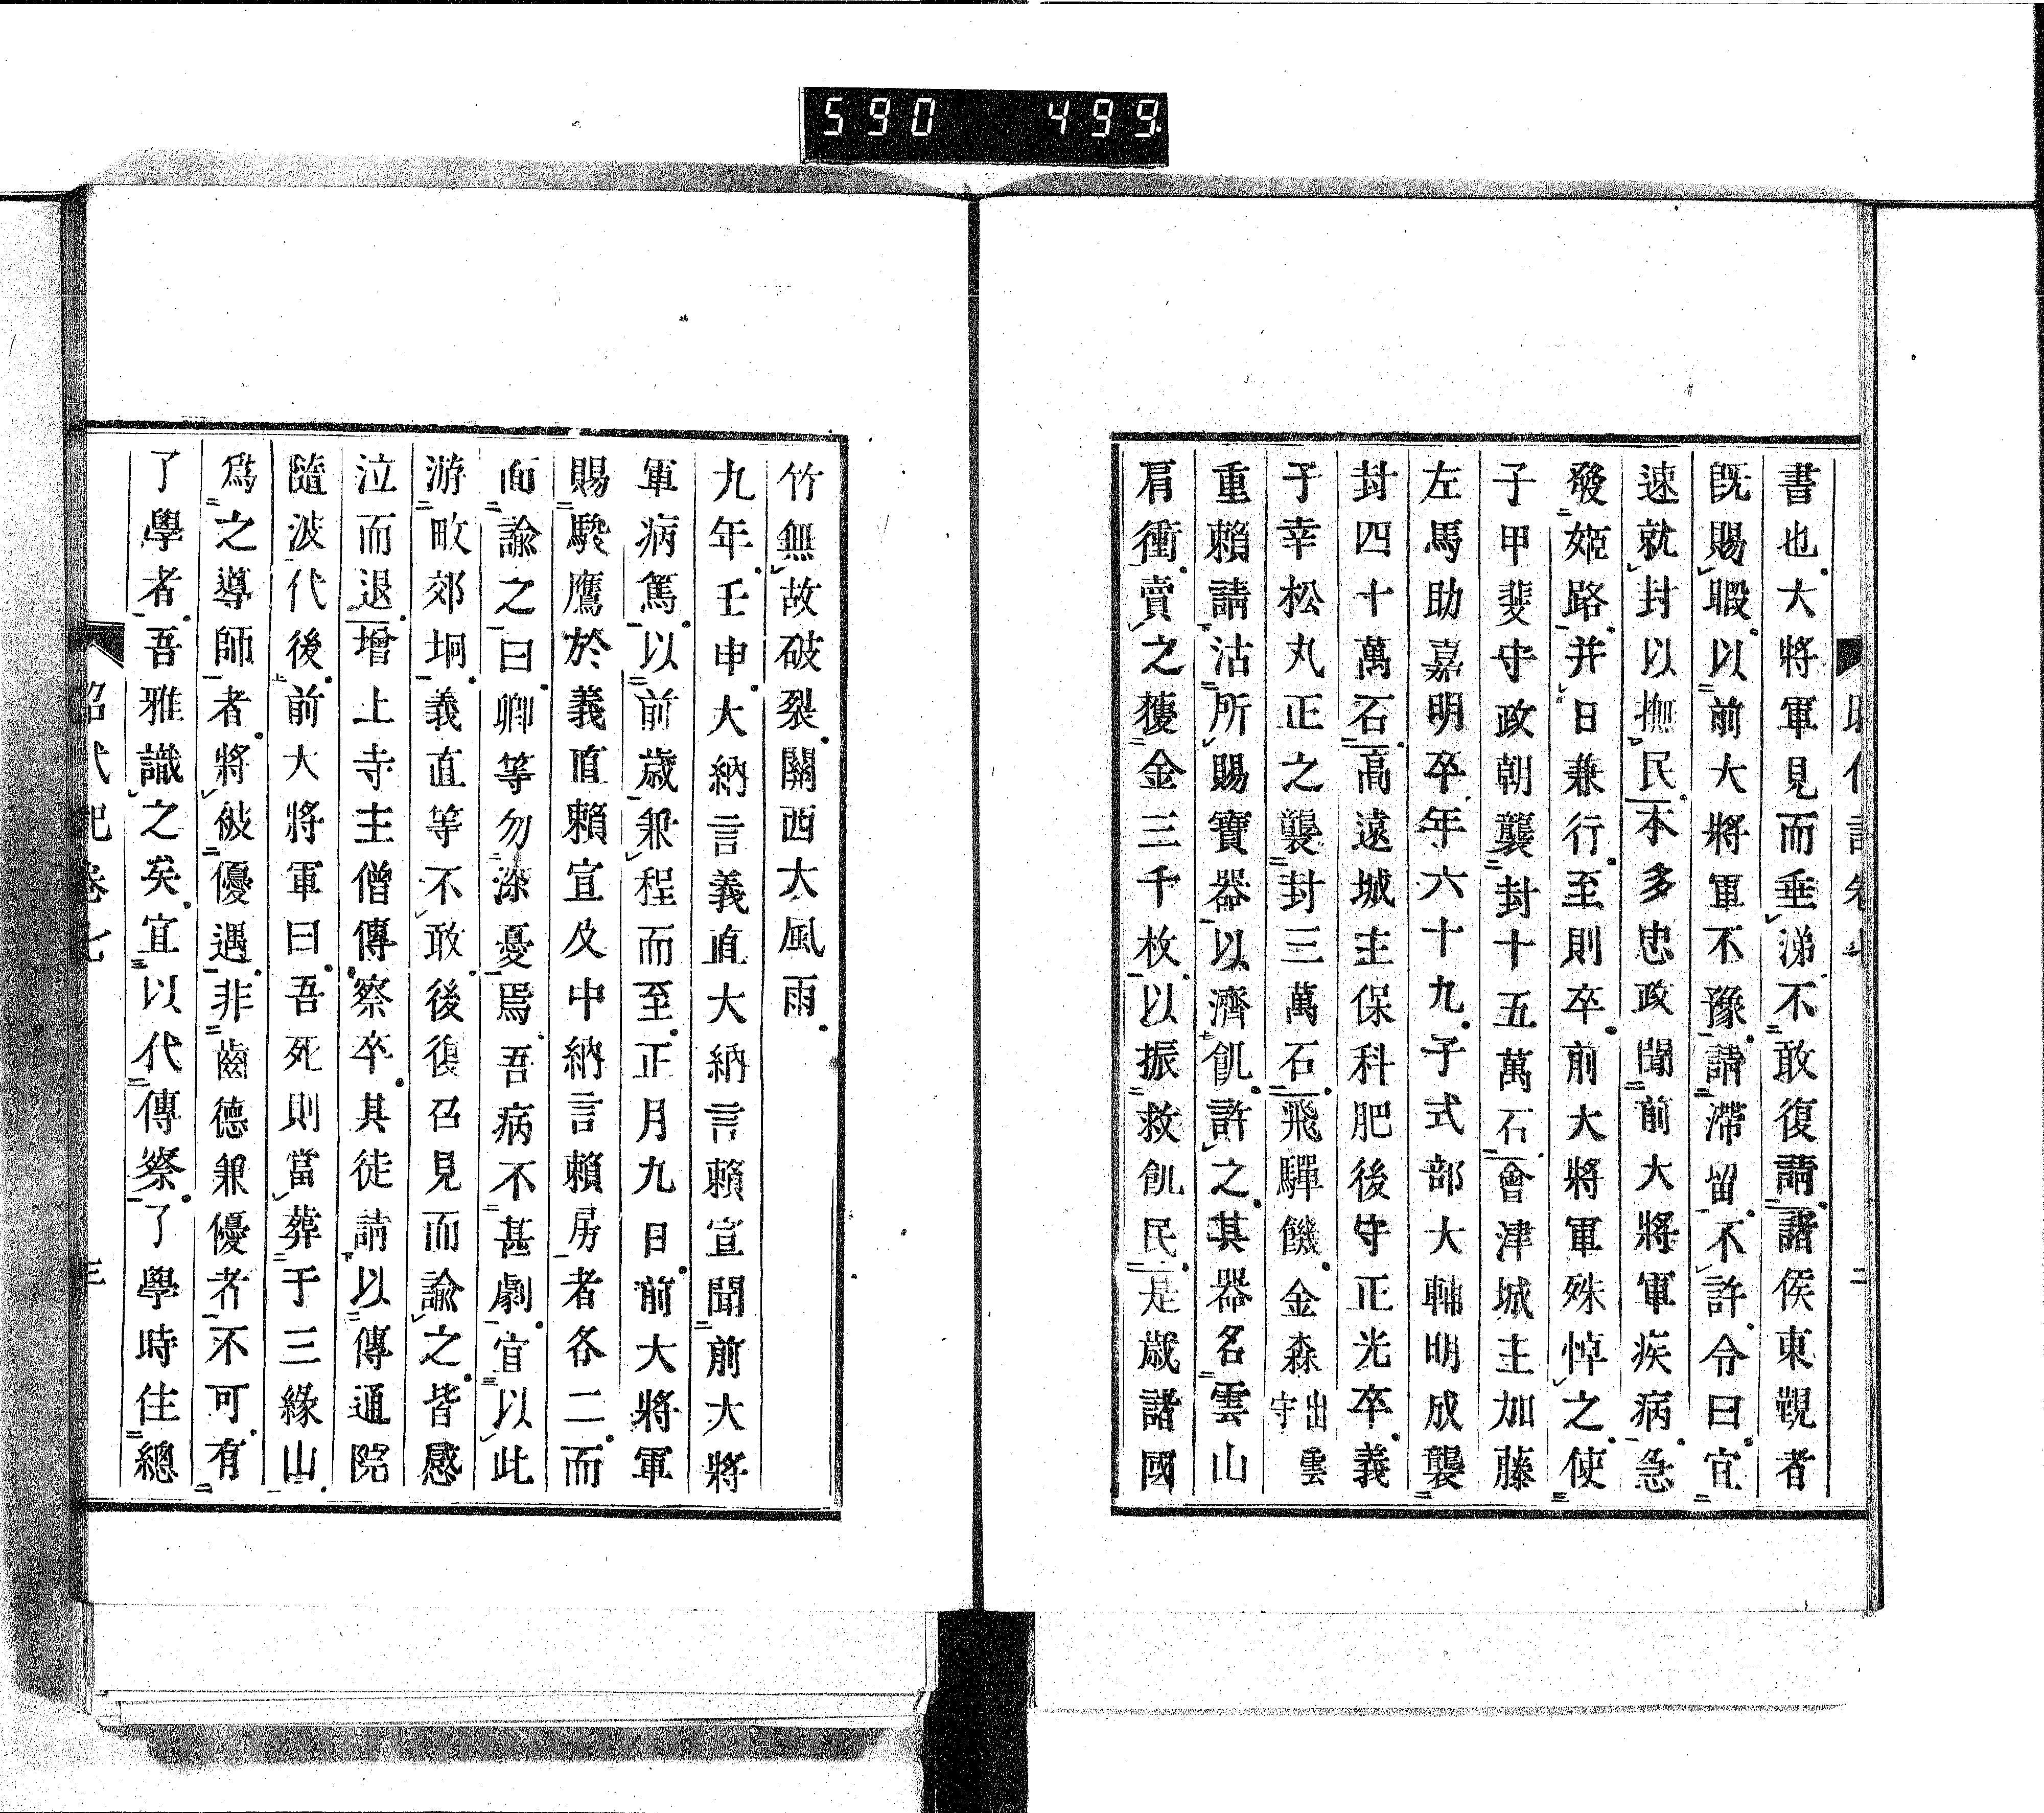 590 499
書也大將軍見而垂涕不敢復請諸侯東覲者
既賜暇以前大將軍不豫請滯留不許令曰宜
速就封以撫民本多忠政聞前大將軍疾病急
發姬路并日兼行至則卒前大將軍殊悼之使
子甲斐守政朝襲封十五萬石會津城主加藤
左馬助嘉明卒年六十九子式部大輔明成襲
封四十萬石高遠城主保科肥後守正光卒義
子幸松丸正之襲封三萬石飛驒饑金森出雲守
重賴請沽所賜寶器以濟飢許之其器名雲山
肩衝賣之獲金三千枚以振救飢民是歲諸國
竹無故破裂關西大風雨
九年壬申大納言義直大納言賴宣聞前大將
軍病篤以前歲兼程而至正月九日前大將軍
賜駿鷹於義直賴宣及中納言賴房者各二而
面諭之曰卿等勿深憂焉吾病不甚劇宜以此
游畋郊坰義直等不敢後復召見而諭之皆感
泣而退增上寺主僧傳察卒其徒請以傳通院
隨波代後前大將軍曰吾死則當葬于三緣山
爲之導師者將被優遇非齒德兼優者不可有
了學者吾雅識之矣宜以代傳察了學時住總
昭代記卷七 三